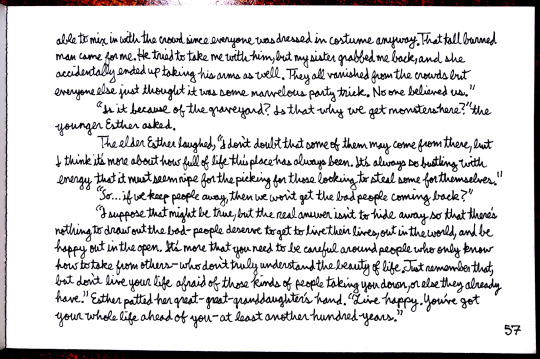 able to mix in with the crowd since everyone was dressed in costume anyway. That tall burned
man came for me. He tried to take me with him, but my sister grabbed me back, and she
accidentally ended up taking his arms as well. They all vanished from the crowds but
everyone else just thought it was some marvelous party trick. No one believed us."
"Is it because of the graveyard? Is that why we get monsters here?" the
younger Esther asked.
The elder Esther laughed, "I don't doubt that some of them may come from there, but
I think it's more about how full of life this place has always been. It's always so bustling with
energy that it must seem ripe for the picking for those looking to steal some for themselves."
"So... if we keep people away, then we won't get the bad people coming back?"
"I suppose that might be true, but the real answer isn't to hide away so that there's
nothing to draw out the bad - people deserve to get to live their lives, out in the world, and be
happy out in the open. It's more that you need to be careful around people who only know
how to take from others - who don't truly understand the beauty of life. Just remember that,
but don't live your life afraid of those kinds of people taking you down, or else they already
have." Esther patted her great-great-granddaughter's hand. "Live happy. You've got
your whole life ahead of you - at least another hundred-years."
57